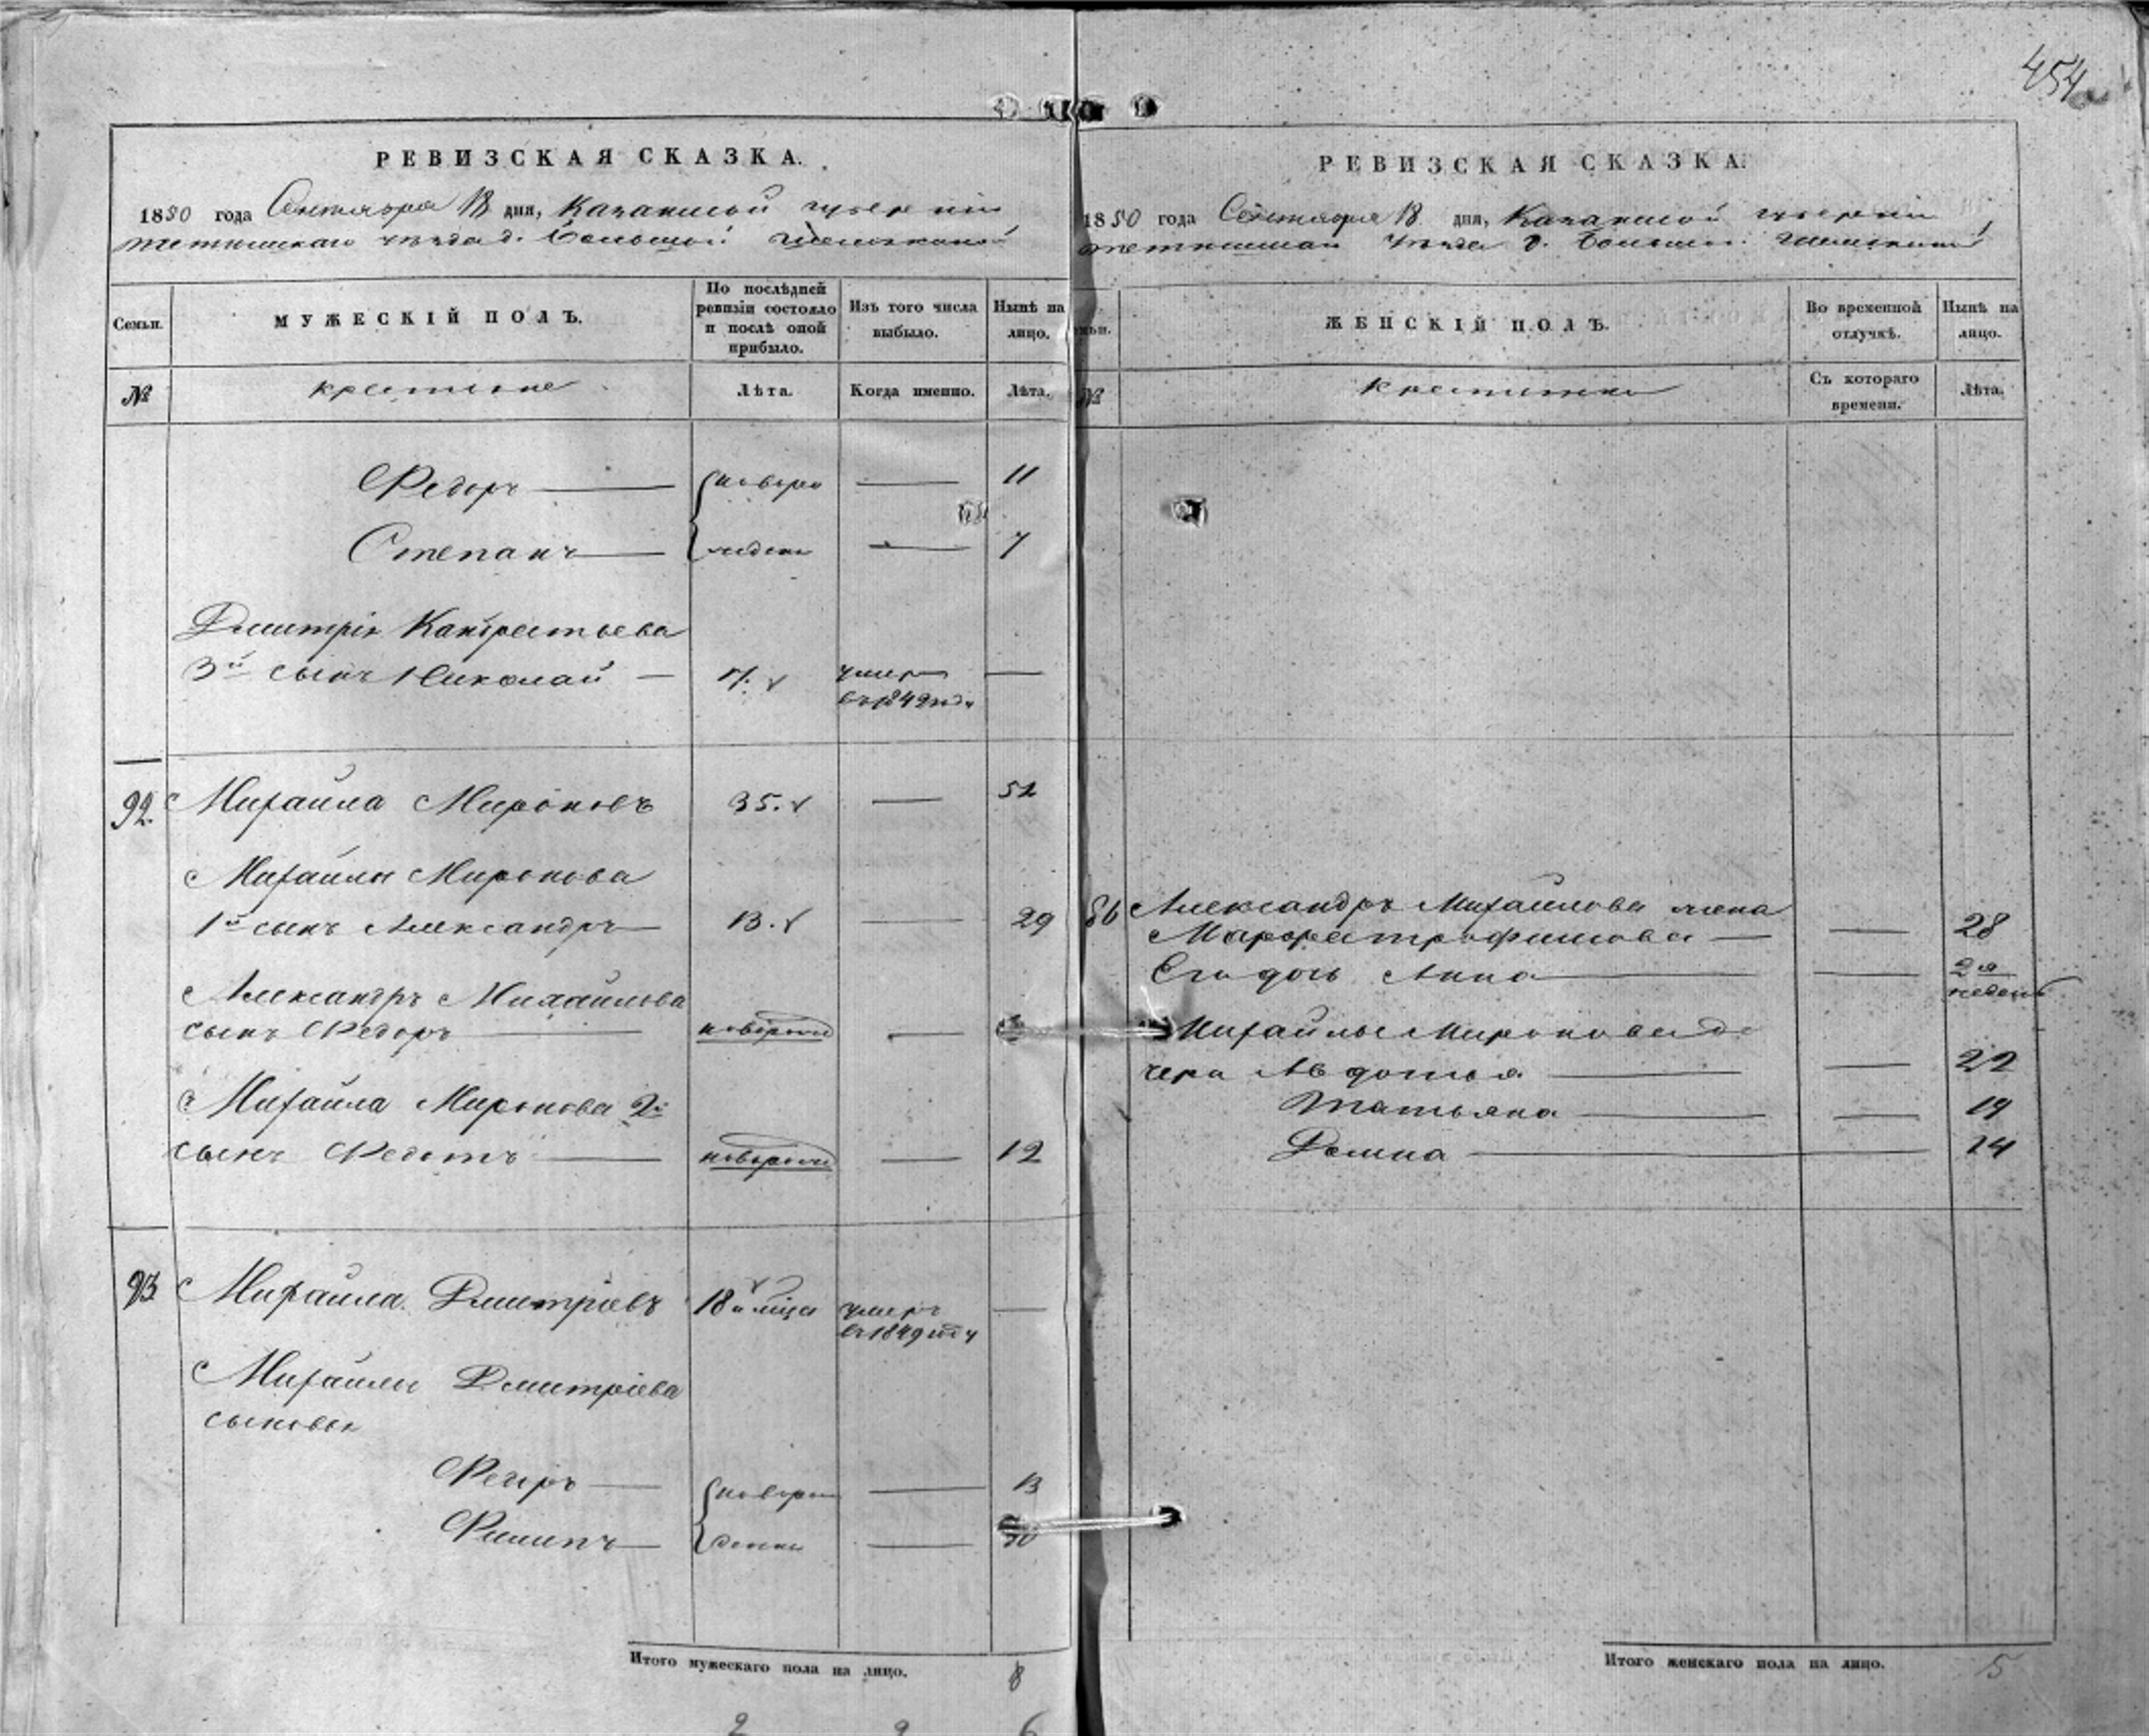 454
РЕВИЗСКАЯ СКАЗКА.
1850 года Сентября 18 дня, Казанской губернии
Тетюшскаго уезда д. Большой
Семьи.
МУЖЕСКІЙ ПОЛЪ.
По послѣдней ревизіи состояло и послѣ оной прибыло.
Изъ того числа выбыло.
Нынѣ на лицо.
№
крестьяне
Лѣта.
Когда именно.
Лѣта.
Федоръ — новоро — 11
Степанъ — ждены — 7
Дмитрія
3й сынъ Николай — умеръ —
въ 1849 году
92. Михайла Мироновъ 35. — 52
Михайлы Миронова
1й сынъ Александръ 13. — 29
Александръ Михайлова
сынъ Федоръ — новорож —
Михайла Миронова 2й
сынъ Федотъ — новорож — 12
93 Михайла Дмитріевъ 18 умеръ —
въ 1849 году
Михайлы Дмитріева
сыновья
Федоръ — новорож — 13
Филипъ — дены —
Итого мужескаго пола на лицо. 8
2 2 6
РЕВИЗСКАЯ СКАЗКА.
1850 года Сентября 18 дня, Казанской губерніи
Тетюшскаго уезда д. Большой
ЖЕНСКІЙ ПОЛЪ.
Во временной отлучкѣ.
Нынѣ на лицо.
№
крестьянки
Съ котораго времени.
Лѣта.
86 Александръ Михайлова жена
Марфа Трофимова — — 28
Его дочь Анна — — 2я недели
Михайлы Миронова до
чери Авдотья — — 22
Татьяна — — 19
Домна — 14
Итого женскаго пола на лицо. 5